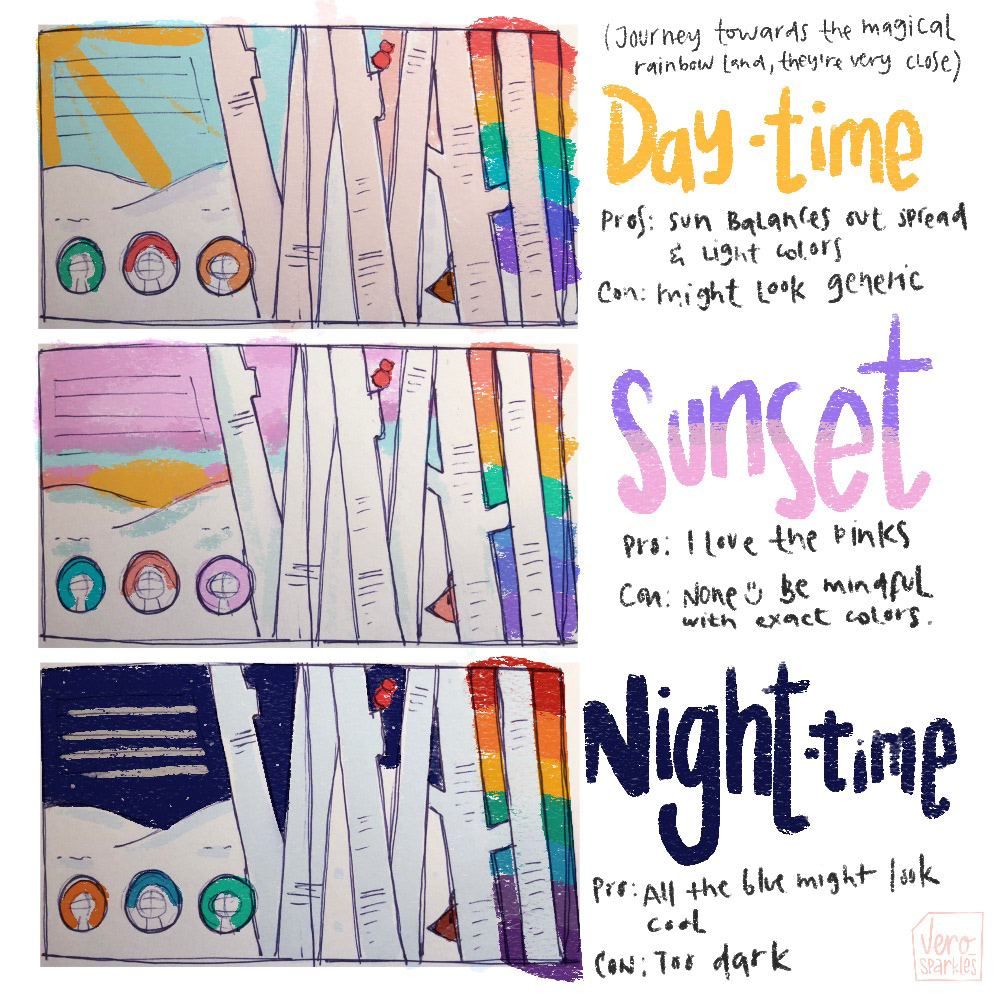 (Journey towards the magical
rainbow land, they're very close)
Day-time
Pros: sun Balances out spread
& light colors
Con: might look generic
sunset
Pro: I love the pinks
Con: None be mindful
with exact colors.
Night-time
Pro: All the blue might look
cool
Con: Too dark
Vero
sparkles